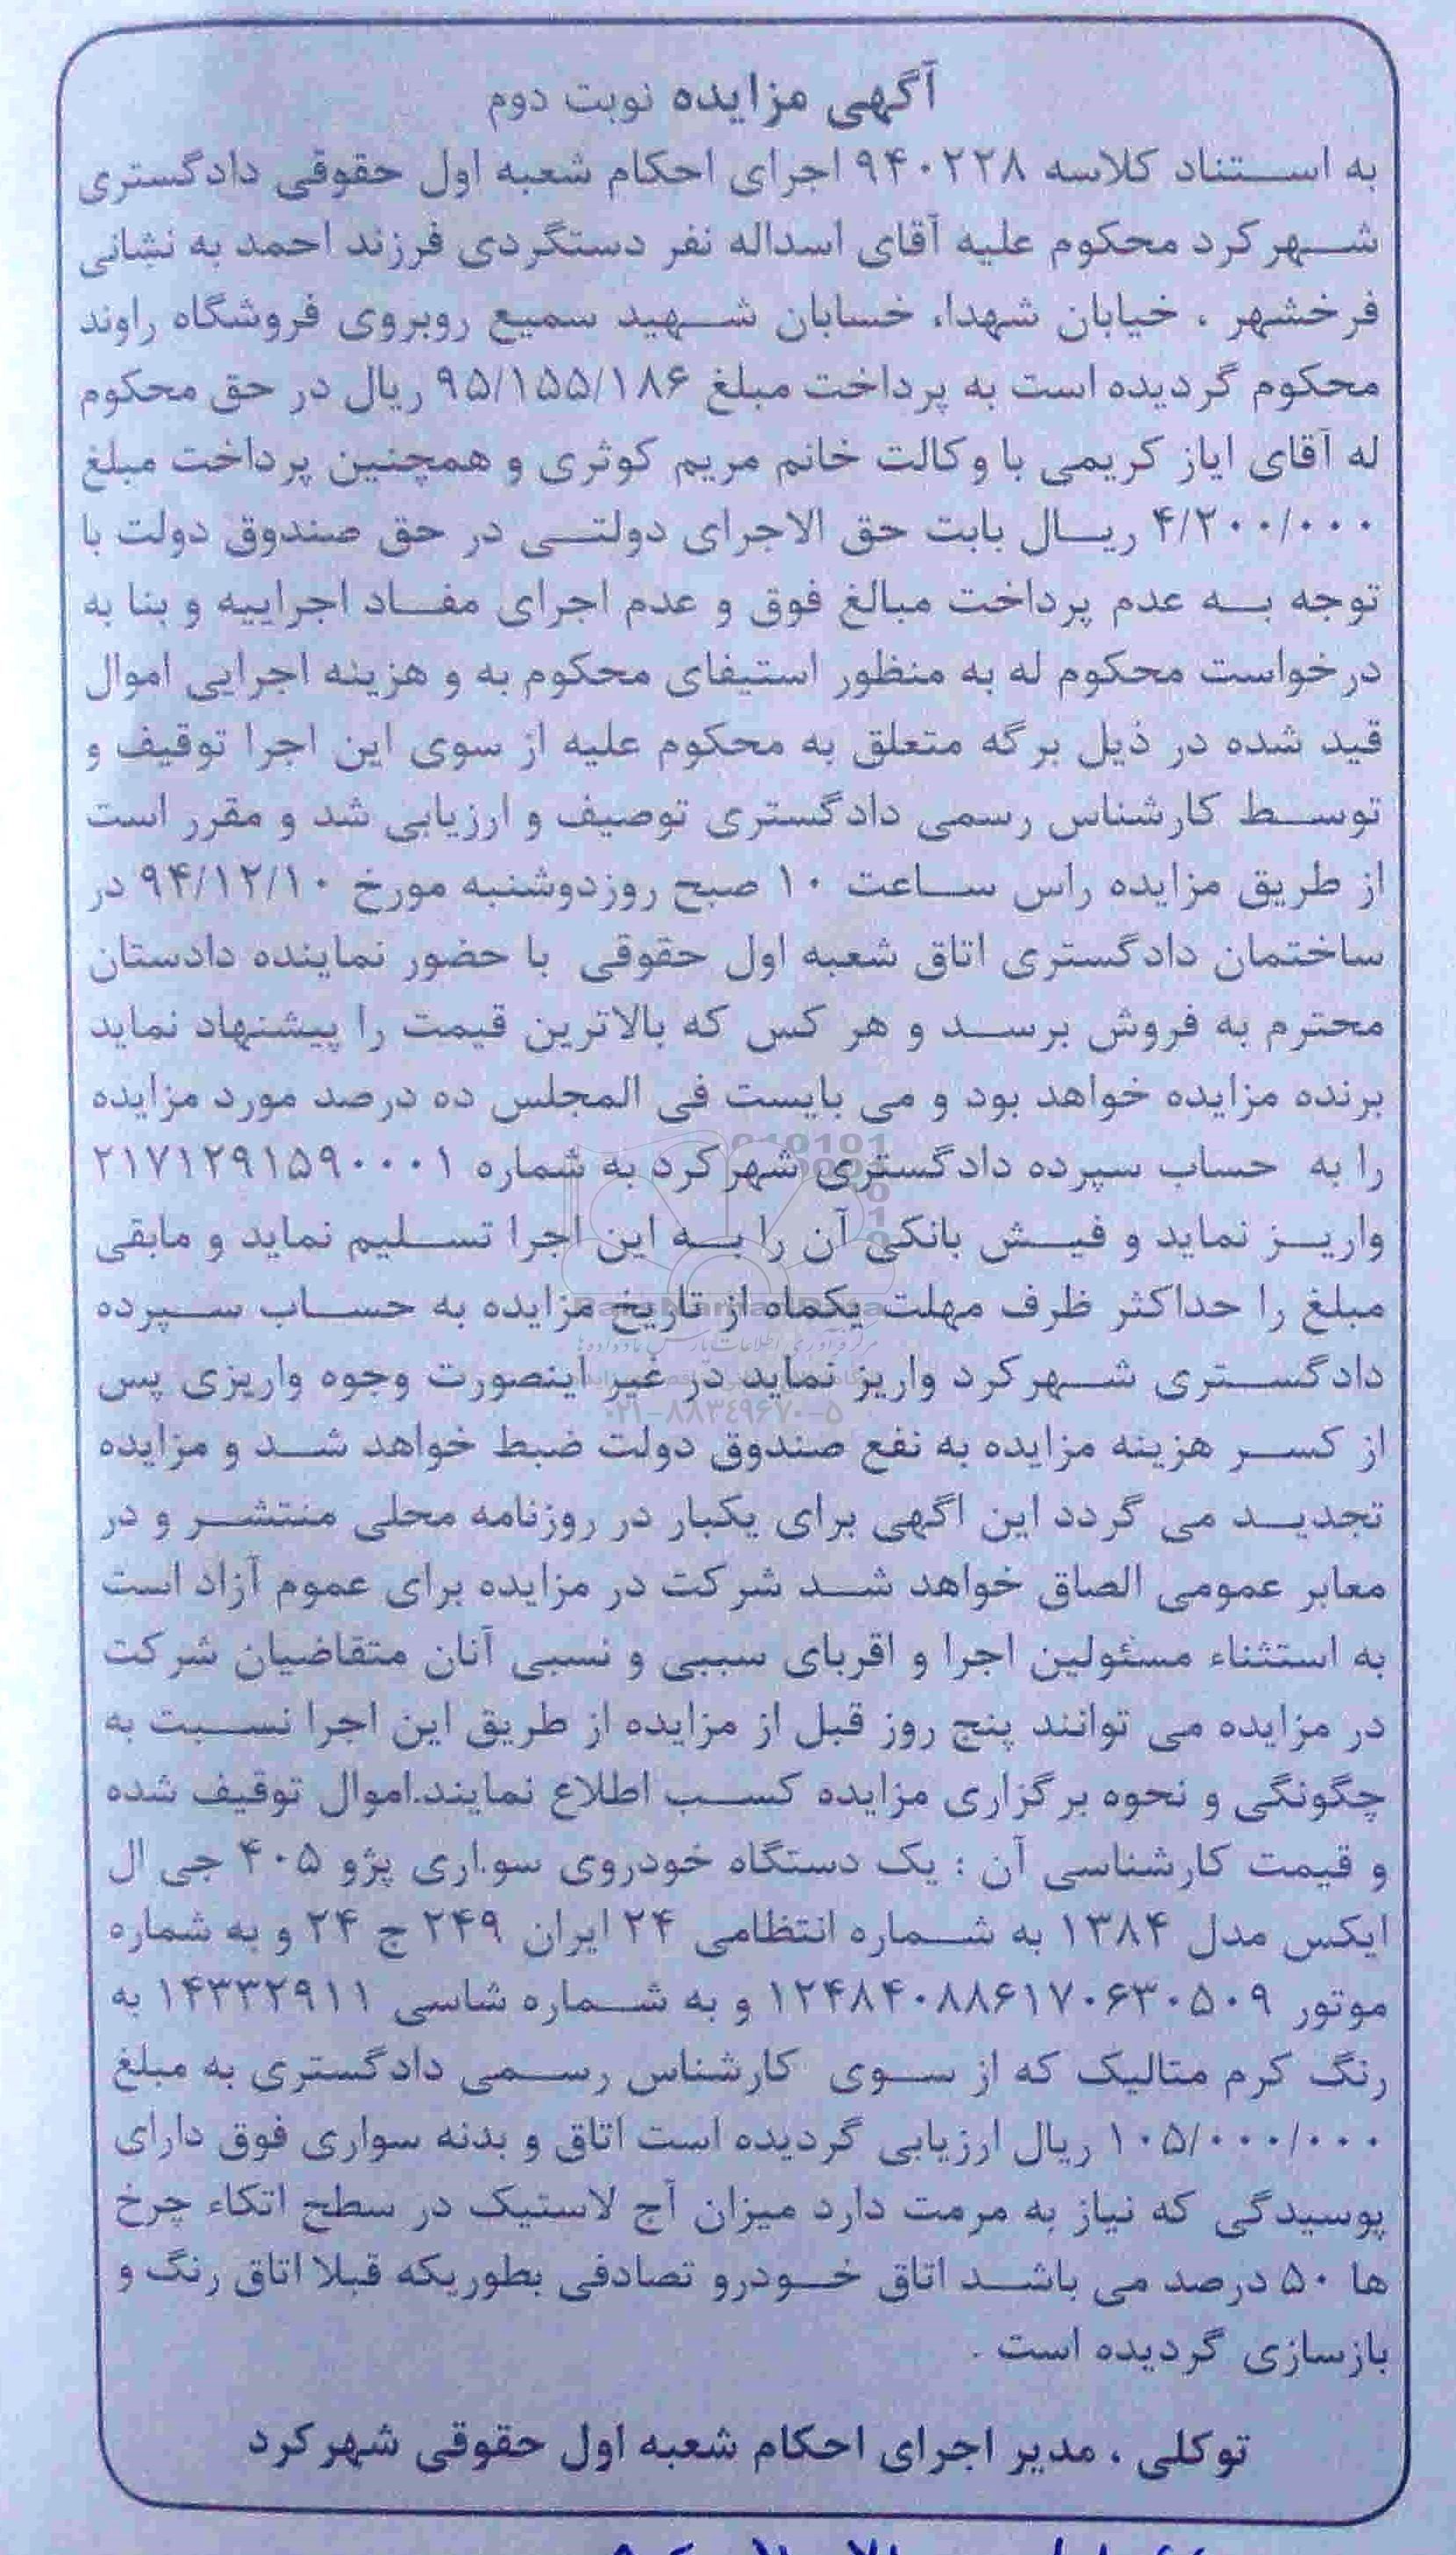 آگهی مزایده نوبت دوم
به استناد کلاسه ۹۴۰۲۲۸ اجرای احکام شعبه اول حقوقی دادگستری
شهرکرد محکوم علیه آقای اسداله نفر دستگردی فرزند احمد به نشانی
فرخشهر ، خیابان شهداء خسابان شهید سمیع روبروی فروشگاه راوند
محکوم گردیده است به پرداخت مبلغ ۹۵/۱۵۵/۱۸۶ ریال در حق محکوم
له آقای ایاز کریمی با وکالت خانم مریم کوثری و همچنین پرداخت مبلغ
۴/۲۰۰/۰۰۰ ریال بابت حق الاجرای دولتی در حق صندوق دولت با
توجه به عدم پرداخت مبالغ فوق و عدم اجرای مفاد اجراییه و بنا به
درخواست محکوم له به منظور استیفای محکوم به و هزینه اجرایی اموال
قید شده در ذیل برگه متعلق به محکوم علیه از سوی این اجرا توقیف و
توسط کارشناس رسمی دادگستری توصیف و ارزیابی شد و مقرر است
از طریق مزایده راس ساعت ۱۰ صبح روزدوشنبه مورخ ۹۴/۱۲/۱۰ در
ساختمان دادگستری اتاق شعبه اول حقوقی با حضور نماینده دادستان
محترم به فروش برسد و هر کس که بالاترین قیمت را پیشنهاد نماید
برنده مزایده خواهد بود و می بایست فی المجلس ده درصد مورد مزایده
را به حساب سپرده دادگستری شهرکرد به شماره ۲۱۷۱۲۹۱۵۹۰۰۰۱
واریز نماید و فیش بانکی آن را به این اجرا تسلیم نماید و مابقی
مبلغ را حداکثر ظرف مهلت یکماه از تاریخ مزایده به حساب سپرده
دادگستری شهرکرد واریز نماید در غیر اینصورت وجوه واریزی پس
۰۲۱-۸۸۳٤۹۶۷۰-۵
از کسر هزینه مزایده به نفع صندوق دولت ضبط خواهد شد و مزایده
تجدید می گردد این آگهی برای یکبار در روزنامه محلی منتشر و در
معابر عمومی الصاق خواهد شد شرکت در مزایده برای عموم آزاد است
به استثناء مسئولین اجرا و اقربای سببی و نسبی آنان متقاضیان شرکت
در مزایده می توانند پنج روز قبل از مزایده از طریق این اجرا نسبت به
چگونگی و نحوه برگزاری مزایده کسب اطلاع نمایند.اموال توقیف شده
و قیمت کارشناسی آن : یک دستگاه خودروی سواری پژو ۴۰۵ جی ال
ایکس مدل ۱۳۸۴ به شماره انتظامی ۲۴ ایران ۲۴۹ ج ۲۴ و به شماره
موتور ۱۲۴۸۴۰۸۸۶۱۷۰۶۳۰۵۰۹ و به شماره شاسی ۱۴۳۳۲۹۱۱ به
رنگ کرم متالیک که از سوی کارشناس رسمی دادگستری به مبلغ
۱۰۵/۰۰۰/۰۰۰ ریال ارزیابی گردیده است اتاق و بدنه سواری فوق دارای
پوسیدگی که نیاز به مرمت دارد میزان آج لاستیک در سطح اتکاء چرخ
ها ۵۰ درصد می باشد اتاق خودرو تصادفی بطوریکه قبلا اتاق رنگ و
بازسازی گردیده است .
توکلی ، مدیر اجرای احکام شعبه اول حقوقی شهرکرد